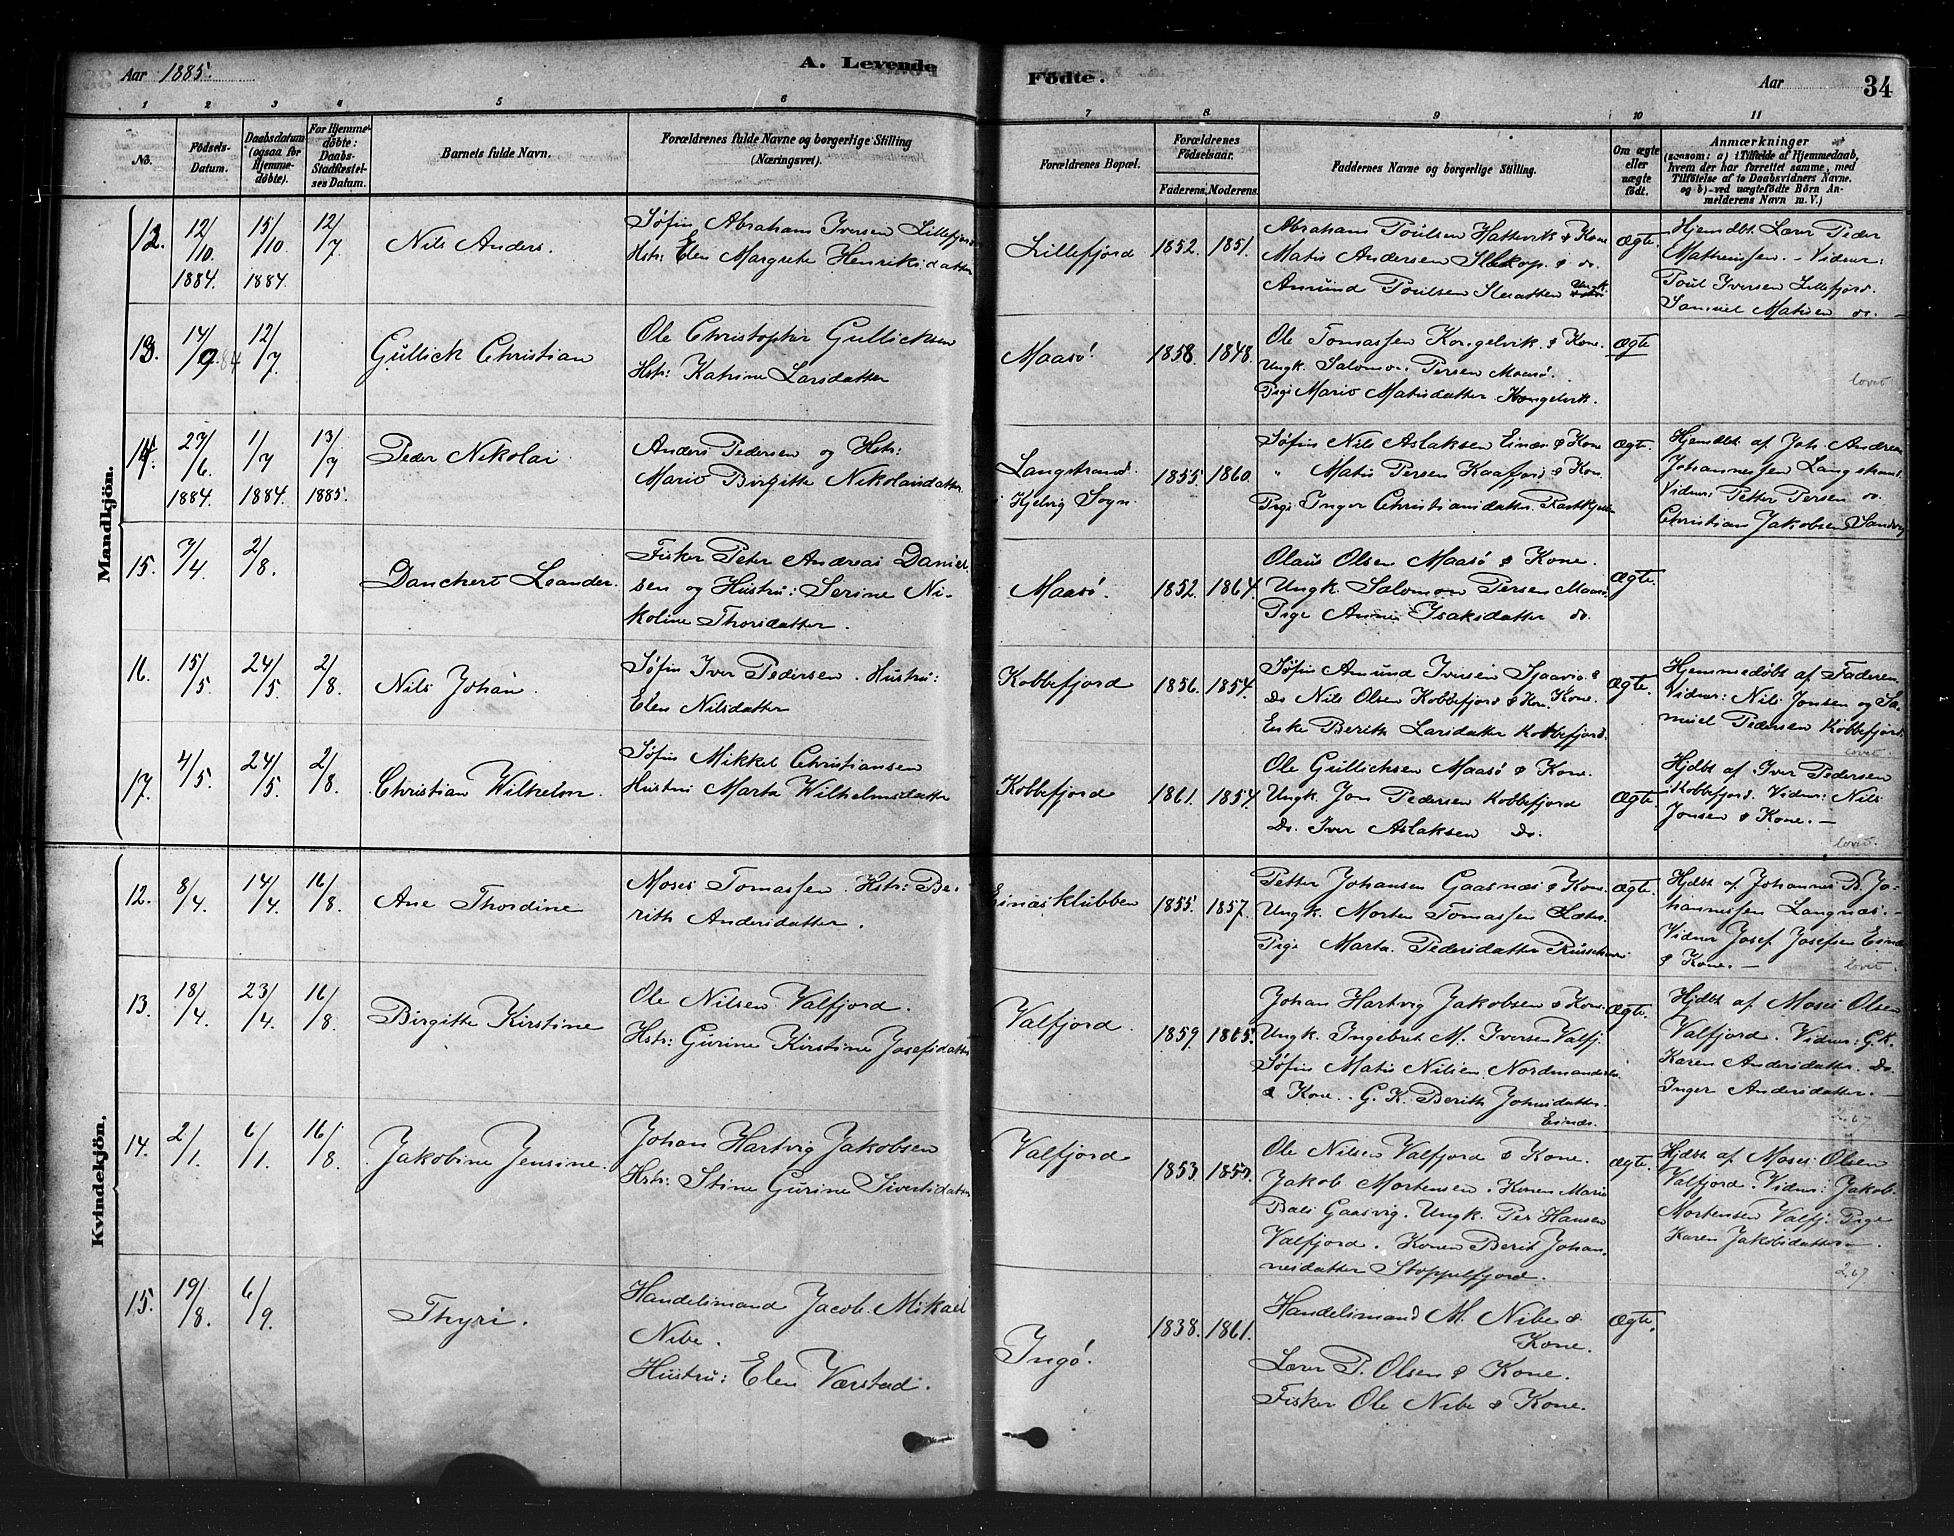 Aar 1885.
A. Levende Födte.
Aar
34
1 2 3 4 5 6 7 8 9 10 11
No.
Födsels-Datum.
Daabsdatum (ogsaa for Hjemmedöbte).
For Hjemmedöbte: Daabs-Stadfæstelses Datum.
Barnets fulde Navn.
Forældrenes fulde Navne og borgerlige Stilling (Næringsvei).
Forældrenes Bopæl.
Forældrenes Födselsaar.
Faderens. Moderens.
Faddernes Navne og borgerlige Stilling.
Om ægte eller uægte födt.
Anmærkninger
(saasom: a) i Tilfælde af Hjemmedaab, hvem der har forrettet samme, med Tilföielse af to Daabsvidners Navne, og b) ved uægtefödte Börn Anmelderens Navn m. V.)
Mandkjön.
12. 12/10 1884 15/10 1884. 12/7
Nils Anders.
Søfin Abraham Iversen Lillefjord
Hstr: Elen Margrete Henriksdatter
Lillefjord 1852. 1851.
Abraham Poulsen Hattevik & Kone
Matis Andersen & do.
Amund Poulsen Ungk.
Ægte.
Hjemdbt. Lærer Peder
Mathiussen. - Vidner:
Poul Iversen Lillefjord.
Samuel Matisen do. -
13. 14/9 84 12/7
Gullick Christian
Ole Christopher Gullicksen
Hstr: Katrine Larsdatter
Maasø. 1858. 1848.
Ole Tomassen Kongelvik. & Kone.
Ungk. Salomon Persen Maasø.
Pige Marit Matisdatter Kongelvik.
Ægte
lovet
14. 27/6 1884 1/7 1884 13/7 1885.
Peder Nikolai
Anders Pedersen og Hstr:
Marit Birgitte Nikolaisdatter
Langstrand.
i Kjelvig Sogn. 1855. 1860.
Søfin Nils Aslaksen Einæs & Kone
" Matis Persen Kaafjord & Kone.
Pige Inger Christiansdatter
Ægte
Hjemdbt. af Joh. Andreas
Johannessen Langstrand.
Vidner: Petter Persen do.
Christian Jakobsen Sandvig
15. 7/4. 2/8.
Danchert Leander.
Fisker Peter Andreas Daniel-
sen og Hustru: Serine Ni-
koline Thorsdatter.
Maasø. 1852. 1864.
Olaus Olsen Maasø & Kone.
Ungk. Salomon Persen Maasø
Pige Anne Isaksdatter do.
Ægte.
16. 15/5 24/5 2/8.
Nils Johan.
Søfin Iver Pedersen. Hustru:
Elen Nilsdatter
Kobbefjord 1856. 1854.
Søfin Amund Iversen &
Do Nils Olsen Kobbefjord & Kone.
Enke Berith Larsdatter Kobbefjord.
Ægte.
Hjemmedøbt af Faderen.
Vidner: Nils Jonsen og Sa-
muel Pedersen Kobbefjord
lovet.
17. 4/5 24/5. 2/8.
Christian Wilhelm.
Søfin Mikkel Christiansen
Hustru Marta Wilhelmsdatter
Kobbefjord 1861. 1854.
Ole Gullichsen Maasø & Kone.
Ungk. Jon Pedersen Kobbefjord
Do. Iver Aslaksen Do.
Ægte.
Hjdbt af Iver Pedersen
Kobbefjord. Vidner: Nils
Jonsen & Kone. -
lovet.
Kvindekjön.
12. 8/4. 14/4. 16/8.
Ane Thordine
Moses Tomassen. Hstr: Be-
rith Andersdatter.
Einæsklubben 1855. 1857.
Petter Johansen Gaasnæs & Kone
Ungk. Morten Tomassen
Pige Marta Pedersdatter
Ægte.
Hjdbt af Johannes B. Jo-
hannessen Langnæs. -
Vidner Josef Josefsen Einæs
& Kone. -
lovet.
13. 18/4. 23/4. 16/8.
Birgitte Kirstine
Ole Nilsen Valfjord.
Hstr: Gurine Kirstine Josefsdatter
Valfjord. 1859. 1865.
Johan Hartvig Jakobsen & Kone
Ungk. Ingebret M. Iversen Valfj.
Søfin Matis Nilsen
& Kone. G. K. Berith Johnsdatter.
Einæs.
Ægte.
Hjdbt af Moses Olsen
Valfjord. Vidner: G. K.
Karen Andersdatter. Do
Inger Andersdatter. -
2,67
14. 2/1. 6/1. 16/8.
Jakobine Jensine.
Johan Hartvig Jakobsen
Hstr: Stine Gurine Sivertsdatter
Valfjord 1853. 1859.
Ole Nilsen Valfjord & Kone.
Jakob Mortensen. Konen Marie
Bals Gaasvig. Ungk. Per Hansen
Valfjord. Konen Berit Johan-
nesdatter Stoppelfjord.
Ægte.
Hjdbt af Moses Olsen
Valfjord. Vidner: Jakob
Mortensen Valfj. Pige
Karen Jakobsdatter -
2,67
15. 19/8. 6/9.
Thyri.
Handelsmand Jacob Mikael
Nibe.
Hustru: Elen Værstad.
Ingø. 1838. 1861.
Handelsmand M. Nibe &
Kone.
Lærer P. Olsen & Kone.
Fisker Ole Nibe & Kone.
Ægte.